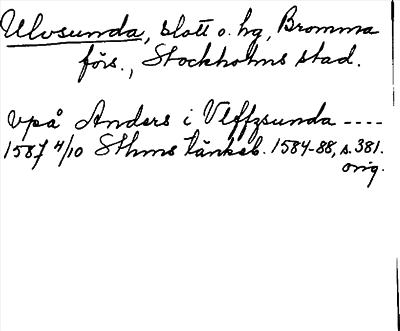 Ulvsunda, slott o. hg, Bromma
förs., Stockholms stad.
vpå Anders i Vlffzsunda ----
1587 4/10 Sthms tänkeb. 1584-88, s. 381.
orig.